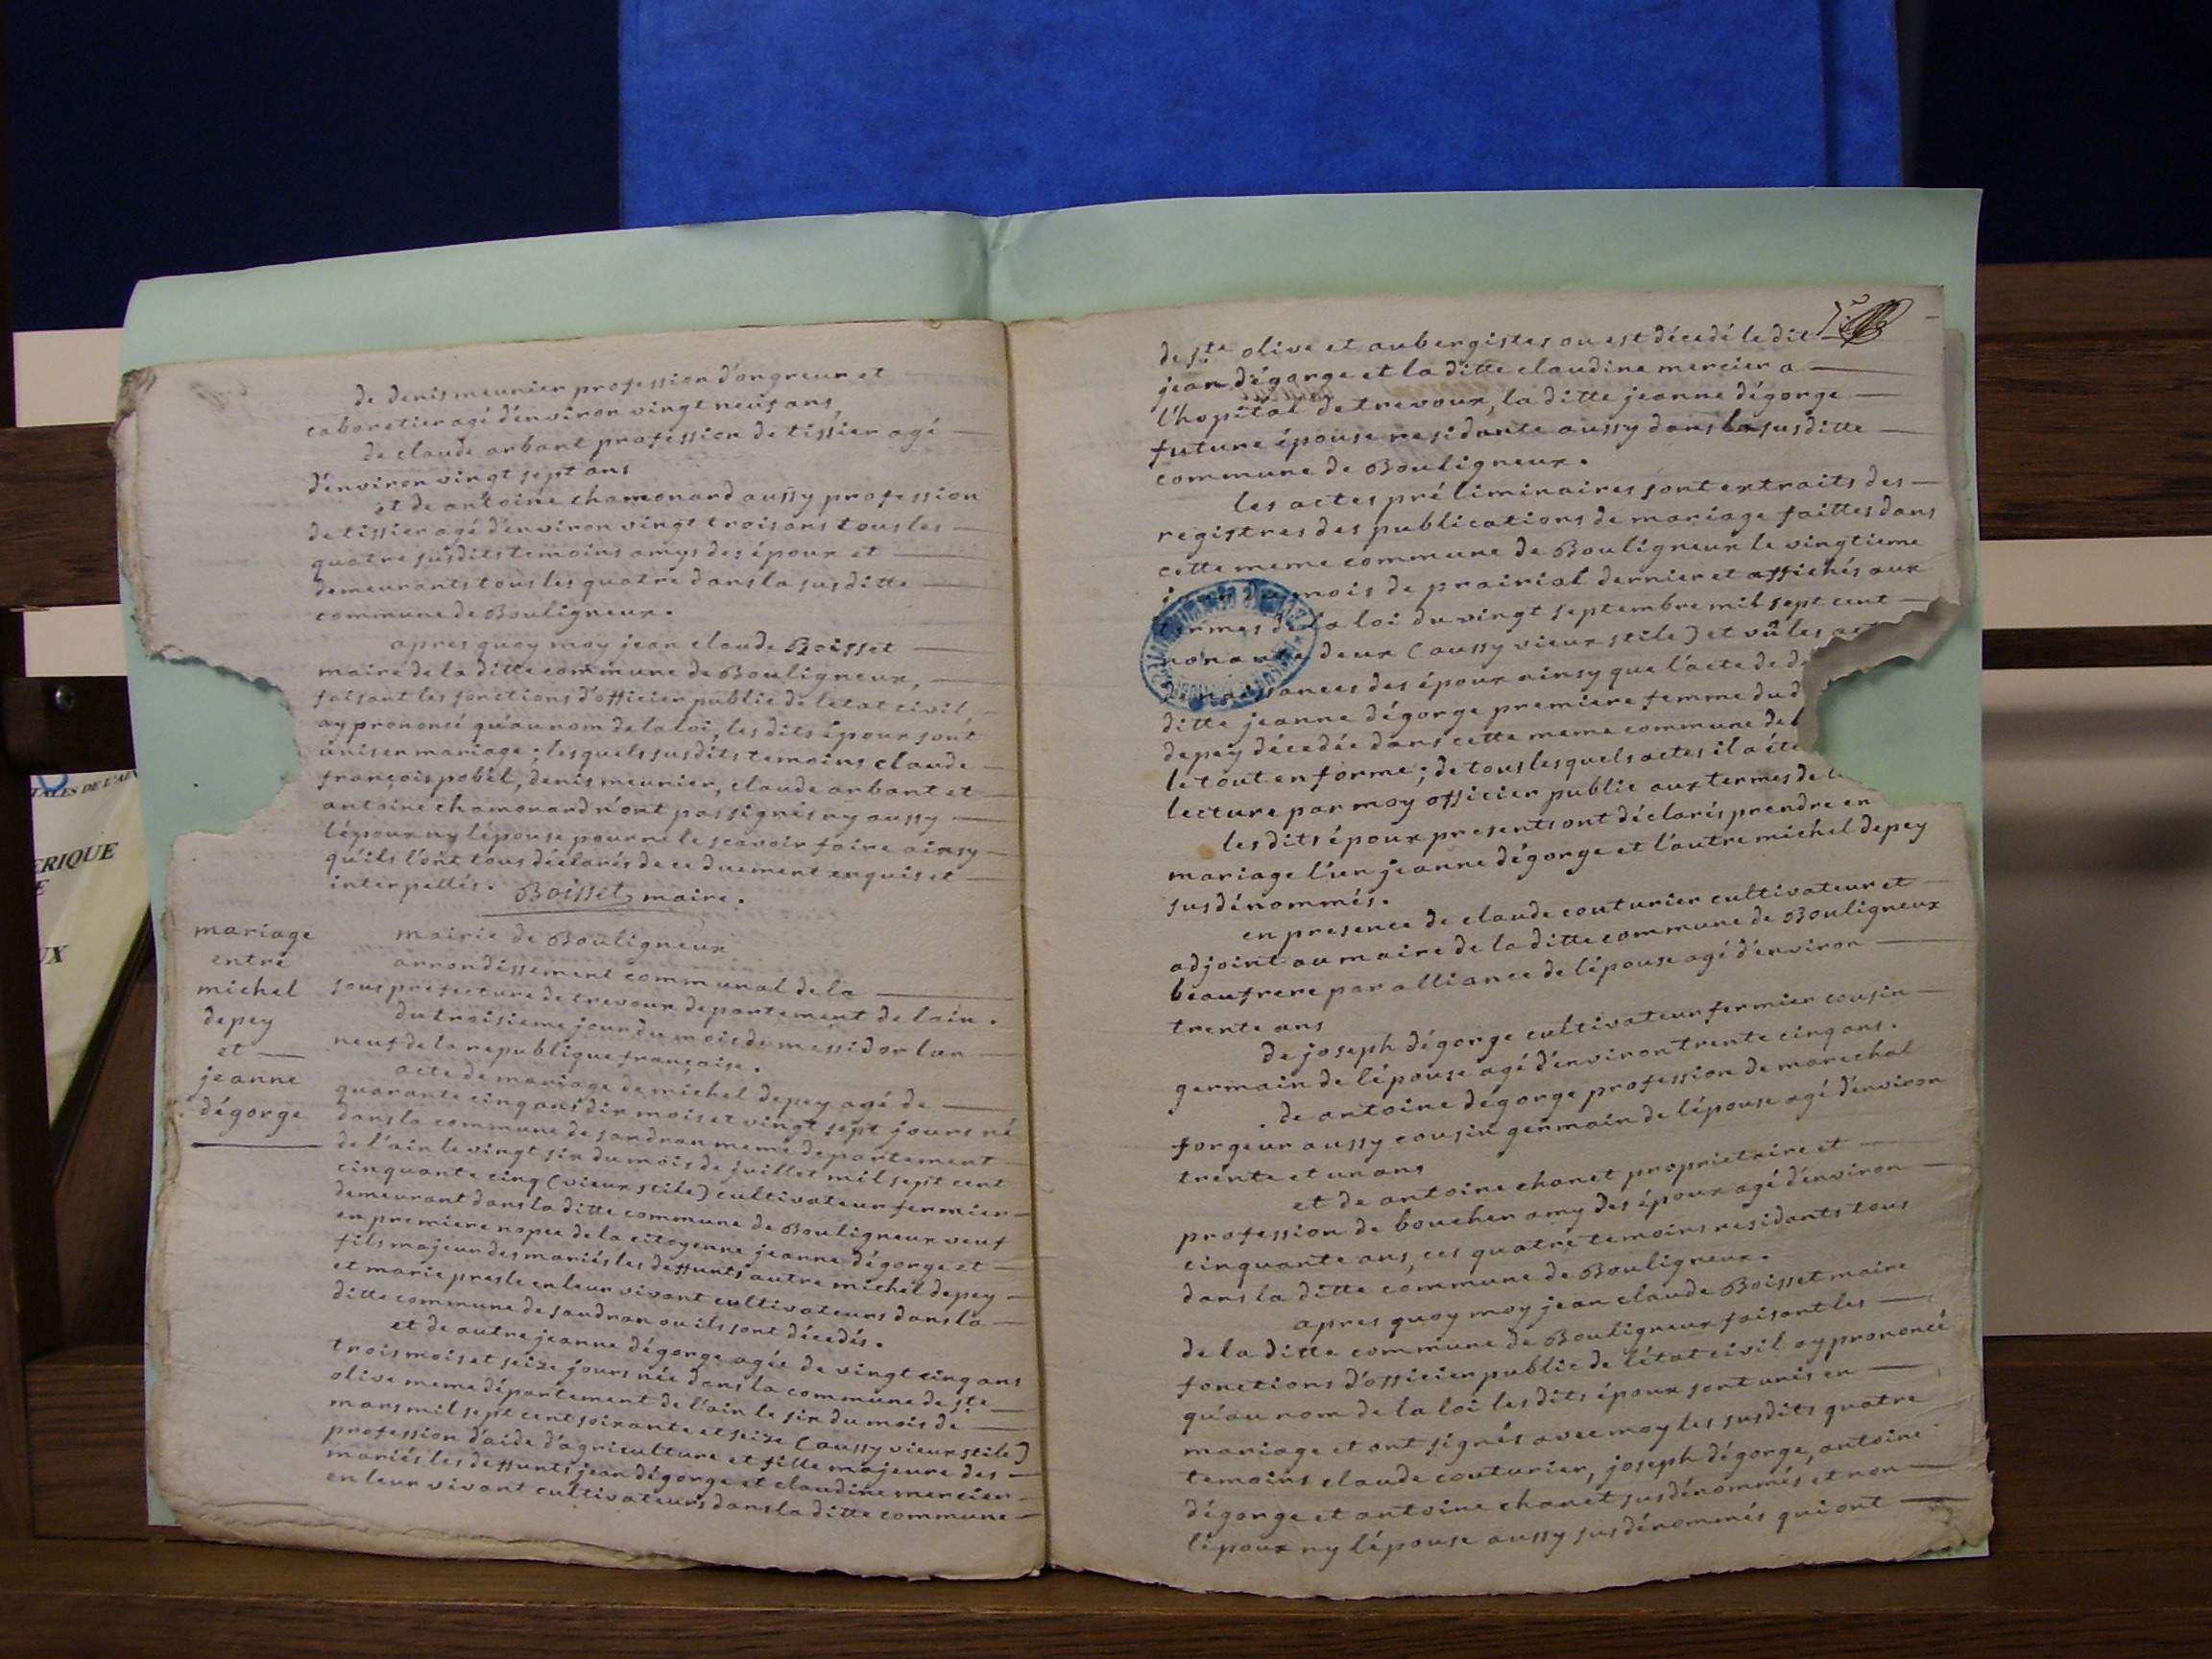 de denis meunier profession d'ongreur et
cabaretier agé d'environ vingt neuf ans,
de claude arbant profession de tissier agé
d'environ vingt sept ans
et de antoine chamonard aussy profession
de tissier agé d'environ vingt trois ans tous les
quatre susdits temoins amys des époux et
demeurants tous les quatre dans la susditte
commune de Bouligneux.
apres quoy moy jean claude Boisset
maire de la ditte commune de Bouligneux,
faisant les fonctions d'officier public de letat civil,
ay prononcé qu'au nom de la loi, les dits époux sont
unis en mariage; lesquels susdits temoins claude
françois pobél, denis meunier, claude arbant et
antoine chamonard n'ont pas signés ny aussy
lépoux ny lépouse pour ne le scavoir faire ainsy
qu'ils l'ont tous déclarés de ce duement enquis et
interpellés. Boisset, maire.
mariage
entre
michel
depey
et
jeanne
dégorge
mairie de Bouligneux
arrondissement communal de la
sous prefecture de trevoux departement de lain.
du troisieme jour du mois de messidor lan
neuf de la republique française.
acte de mariage de michel depey agé de
quarante cinq ans dix mois et vingt sept jours né
dans la commune de sandran meme departement
de l'ain le vingt six du mois de juillet mil sept cent
cinquante cinq (vieux stile) cultivateur fermier
demeurant dans la ditte commune de Bouligneux veuf
en premiere nopce de la citoyenne jeanne dégorge et
fils majeur des mariés les deffunts autre michel depey
et marie presle en leur vivant cultivateurs dans la
ditte commune de sandran ou ils sont décedés.
et de autre jeanne dégorge agée de vingt cinq ans
trois mois et seize jours née dans la commune de ste
olive meme département de l'ain le six du mois de
mars mil sept cent soixante et seize (aussy vieux stile)
profession d'aide d'agriculture et fille majeure des
mariés les deffunts jean dégorge et claudine mercier
en leur vivant cultivateurs dans la ditte commune
de ste olive et aubergistes ou est décedé le dit
jean dégorge et la ditte claudine mercier a
l'hopital de trevoux, la ditte jeanne dégorge
future épouse residante aussy dans la susditte
commune de Bouligneux.
les actes préliminaires sont extraits des
registres des publications de mariage faittes dans
cette meme commune de Bouligneux le vingtieme
jour du mois de prairial dernier et affichés aux
termes de la loi du vingt septembre mil sept cent
nonante deux (aussy vieux stile) et vû les
de naissances des époux ainsy que l'acte de
ditte jeanne dégorge premiere femme du
depey décedée dans cette meme commune de
le tout en forme; de tous lesquels actes il a été
lecture par moy officier public aux termes de
les dits époux presents ont déclarés prendre en
mariage l'un jeanne dégorge et l'autre michel depey
susdénommés.
en presence de claude couturier cultivateur et
adjoint au maire de la ditte commune de Bouligneux
beaufrere par alliance de lépouse agé d'environ
trente ans
de joseph dégorge cultivateur fermier cousin
germain de lépouse agé d'environ trente cinq ans.
de antoine dégorge profession de marechal
forgeur aussy cousin germain de lépouse agé d'environ
trente et un ans
et de antoine chanet proprietaire et
profession de boucher amy des époux agé d'environ
cinquante ans, ces quatre temoins residants tous
dans la ditte commune de Bouligneux.
apres quoy moy jean claude Boisset maire
de la ditte commune de Bouligneux faisant les
fonctions d'officier public de l'état civil ay prononcé
qu'au nom de la loi les dits époux sont unis en
mariage et ont signés avec moy les susdits quatre
temoins claude couturier, joseph dégorge, antoine
dégorge et antoine chanet susdénommés et non
lépoux ny lépouse aussy susdénommés qui ont
ERIQUE
UX